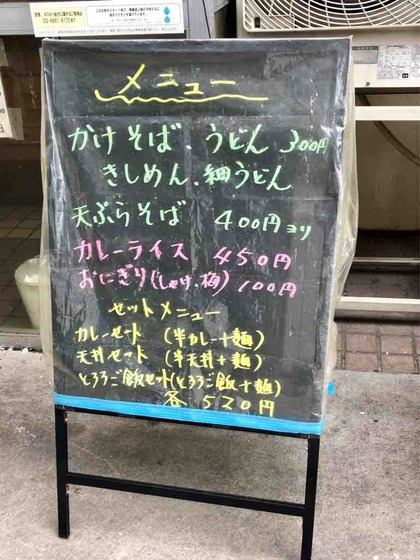 メニュー
かけそば.うどん 300円
きしめん.細うどん
天ぷらそば 400円ヨリ
カレーライス 450円
おにぎり(しゃけ.梅) 100円
セットメニュー
カレーセット (半カレー+麺)
天丼セット (半天丼+麺)
とろろご飯セット(とろろご飯+麺)
各 520円